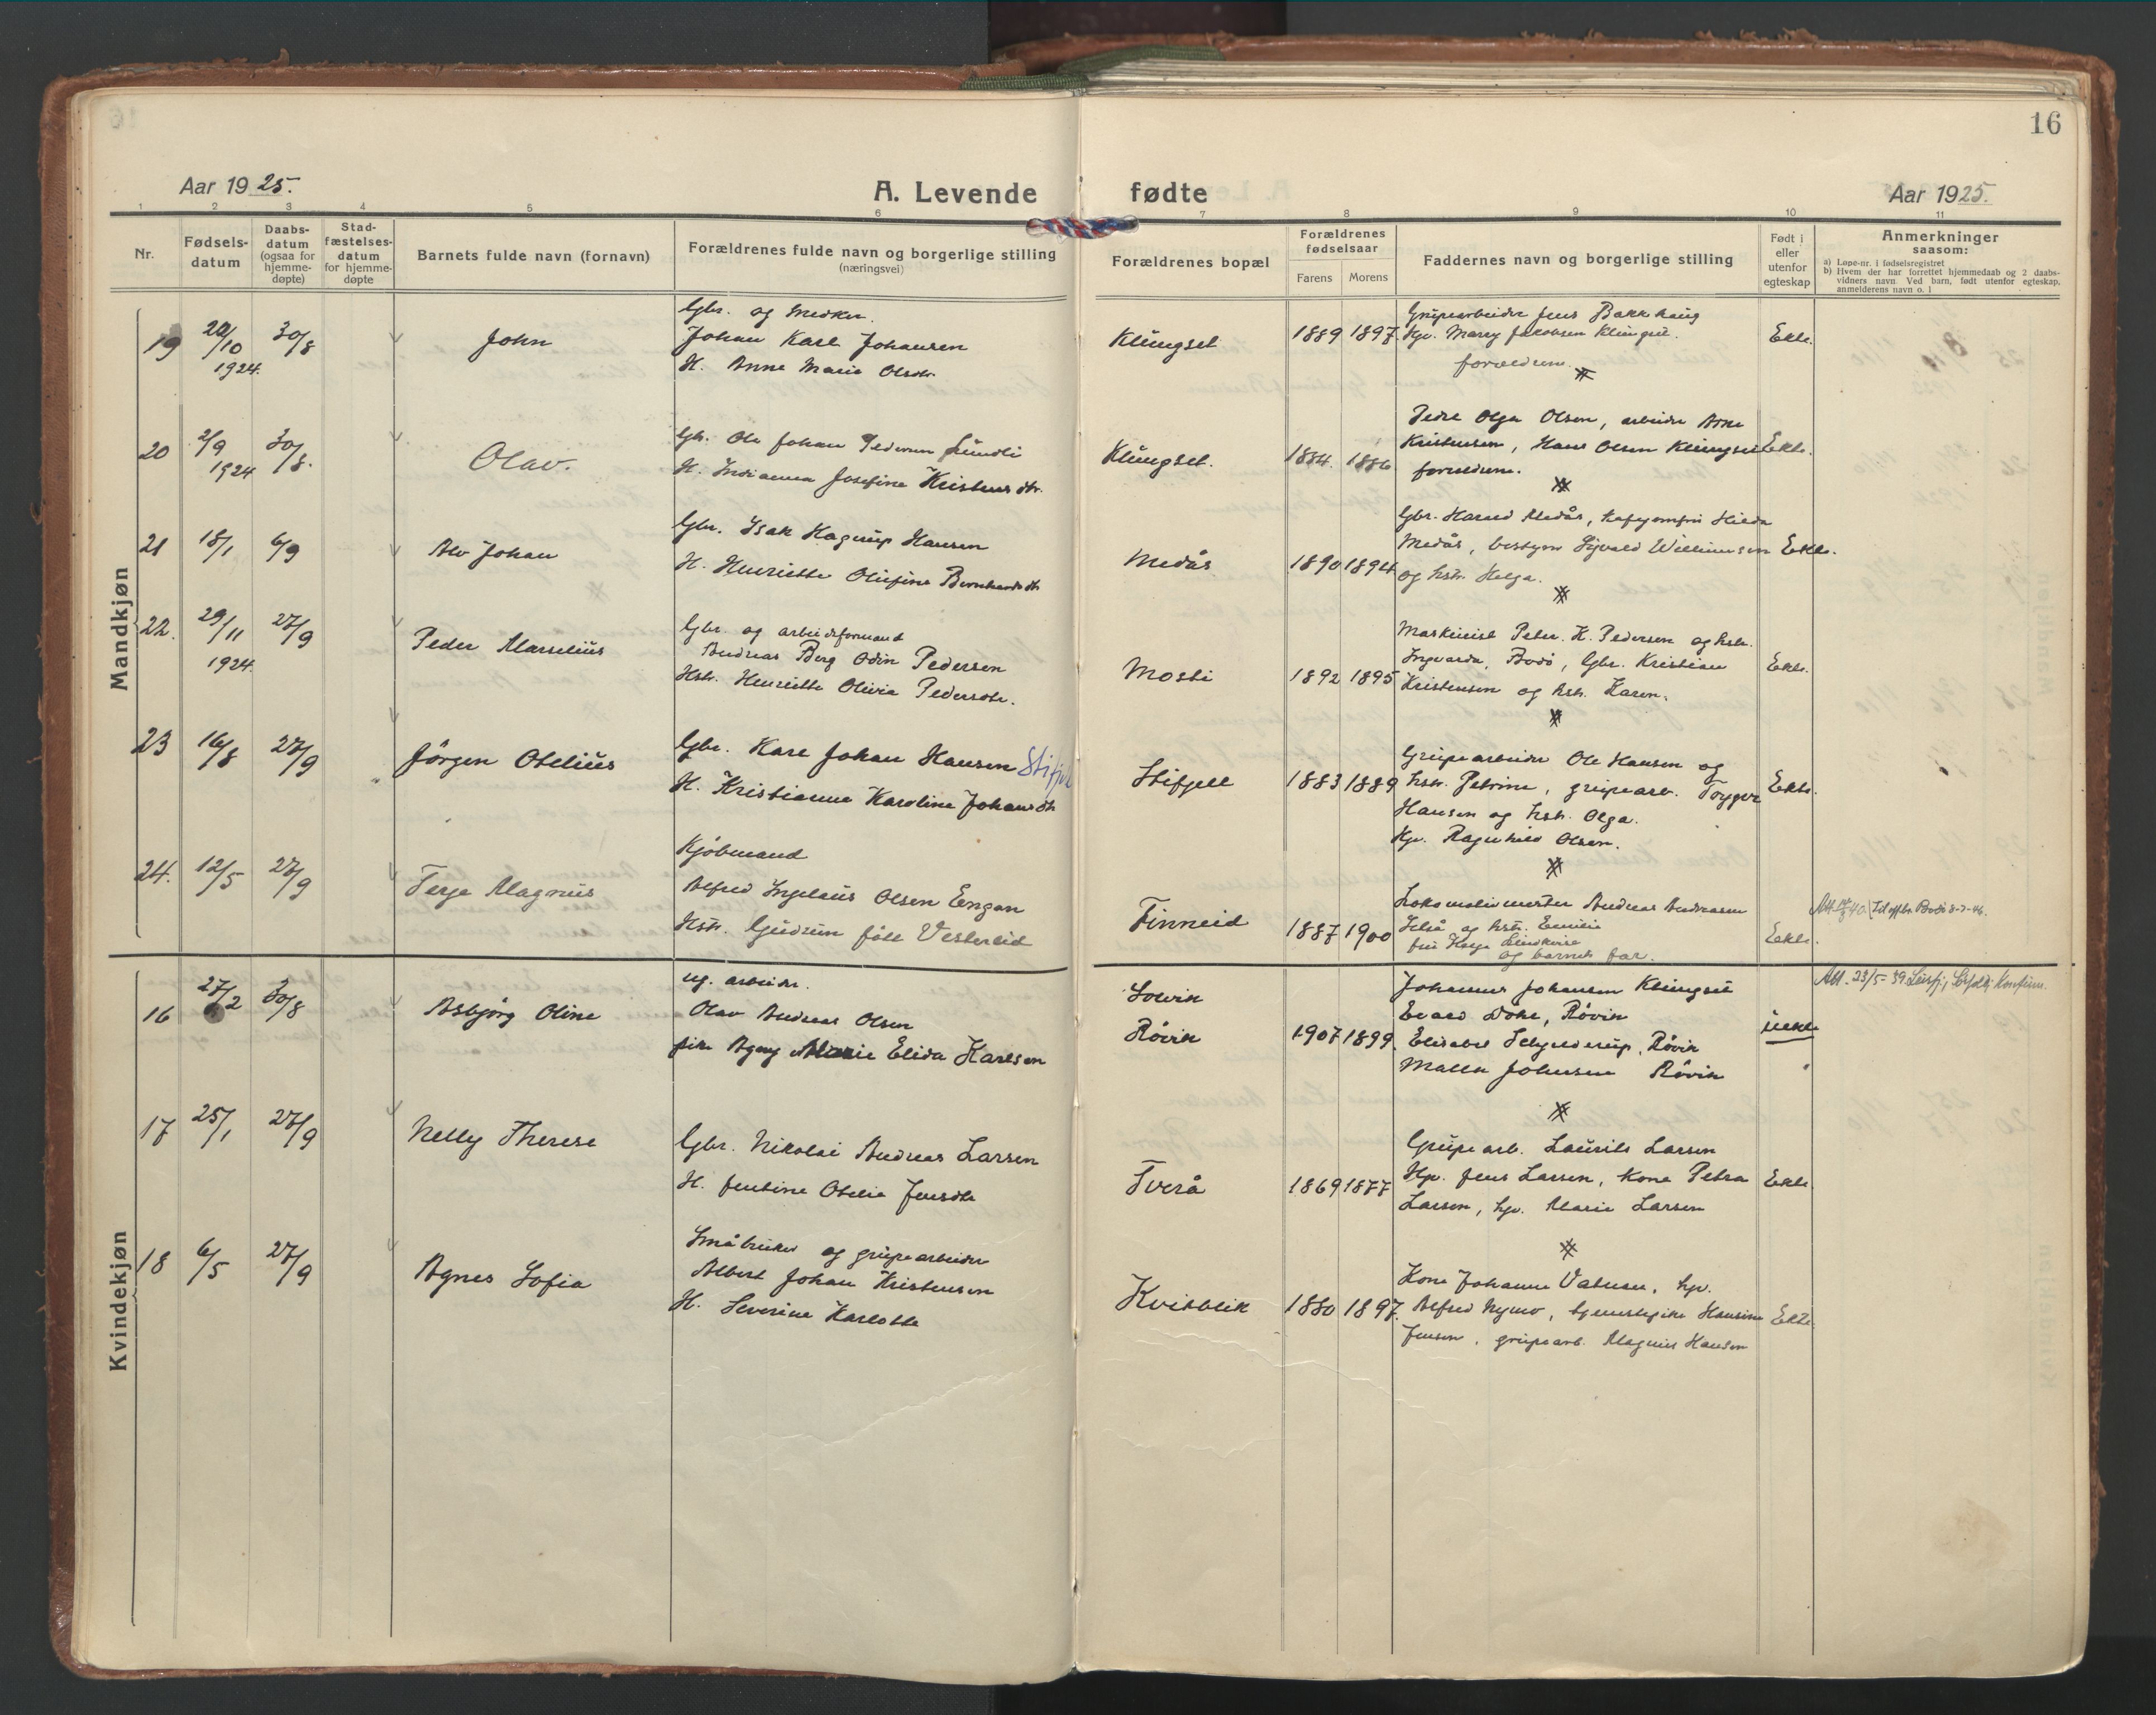 16
Aar 1925.
A. Levende fødte
Aar 1925.
1 2 3 4 5 6 7 8 9 10 11
Nr.
Fødsels-
datum
Daabs-
datum
(ogsaa for
hjemme-
døpte)
Stad-
fæstelses-
datum
for hjemme-
døpte
Barnets fulde navn (fornavn)
Forældrenes fulde navn og borgerlige stilling
(næringsvei)
Forældrenes bopæl
Forældrenes
fødselsaar
Farens Morens
Faddernes navn og borgerlige stilling
Født i
eller
utenfor
egteskap
Anmerkninger
saasom:
a) Løpe-nr. i fødselsregistret
b) Hvem der har forrettet hjemmedaab og 2 daabs-
vidners navn. Ved barn, født utenfor egteskap,
anmelderens navn o. l
Mandkjøn
19
20/10
1924.
30/8
John
Gbr. og
Johan Karl Johansen
H. Anne Marie Olsdtr.
Klungset
1889 1897.
Grubearbeider Jens Bakkhaug
Hjv. Marry Jakobsen Klungset.
forældrene.
Ekte.
20
2/9
1924
30/8.
Olav.
Gbr. Ole Johan Pedersen Lundli
H. Indianna Josefine Kristensdtr.
Klungset.
1884. 1886
Pedr Olga Olsen, arbeider Arne
Kristensen, Hans Olsen Klungset
forældrene.
Ekte.
21
18/1
6/9
Alv Johan
Gbr. Isak Hagerup Hansen
H. Henriette Olufine Bernhardsdtr
Medås
1890 1894
Gbr. Harald Medås, kafejomfru Hilda
Medås, bestyrer Sigvald Williumsen
og hstr. Helga.
Ekte.
22.
29/11
1924.
27/9
Peder Marselius
Gbr. og arbeidsformand
Andreas Berg Odin Pedersen
Hstr. Henriette Olivia Pedersdtr.
Mosti
1892 1895
Maskinist Peter K. Pedersen og hstr.
Ingvarda, Bodø, Gbr. Kristian
Kristensen og hstr. Karen.
Ekte.
23
16/8
27/9
Jørgen Otelius
Gbr. Karl Johan Hansen Stifjel
H. Kristianna Karoline Johansdtr
Stifjell
1883 1889
Grubearbeider Ole Hansen og
hstr. Petrine, grubearb. Trygve
Hansen og hstr. Olga.
Hjv. Ragnhild Olsen.
Ekte.
24.
12/5
27/9
Terje Magnus
Kjøbmand
Alfred Ingelaus Olsen Engan
Hstr. Gudrun født Vestereid
Finneid
1887 1900
Lokomotivmester Andreas Andreasen
og hstr. Emilie
fru Helga Lindkvist
og barnets far.
Ekte.
Til offbr. Bodø 8-7-46.
Kvindekjøn
16
27/2
30/8
Asbjørg Oline
ug. arbeider.
Olav Andreas Olsen
pike Agny Marie Elida Karlsen
Løvik
Røvik
1907 1899.
Johannes Johansen Klungset
Evald Dohl, Røvik
Elisabet Schjelderup, Røvik
Malla Johnsen Røvik
uekte
Att. 23/5-39 Leirfj., Konfirm.
17
25/1
27/9
Nelly Therese
Gbr. Nikolai Andreas Larsen
H. Jentine Otelie Jensdtr
Tverå
1869 1877
Grubearb. Laurits Larsen
Hjv. Jens Larsen, kone Petra
Larsen, hjv. Marie Larsen
Ekte
18
6/5
27/9
Agnes Sofia
Småbruker og grubearbeider
Albert Johan Kristensen
H. Severine Karlotte
Kvitblik
1880 1897.
Kone Johanne Vatnsen, hjv.
Alfred Nymo, tjenestepike Hansine
Jensen, grubearb. Magnus Hansen
Ekte.